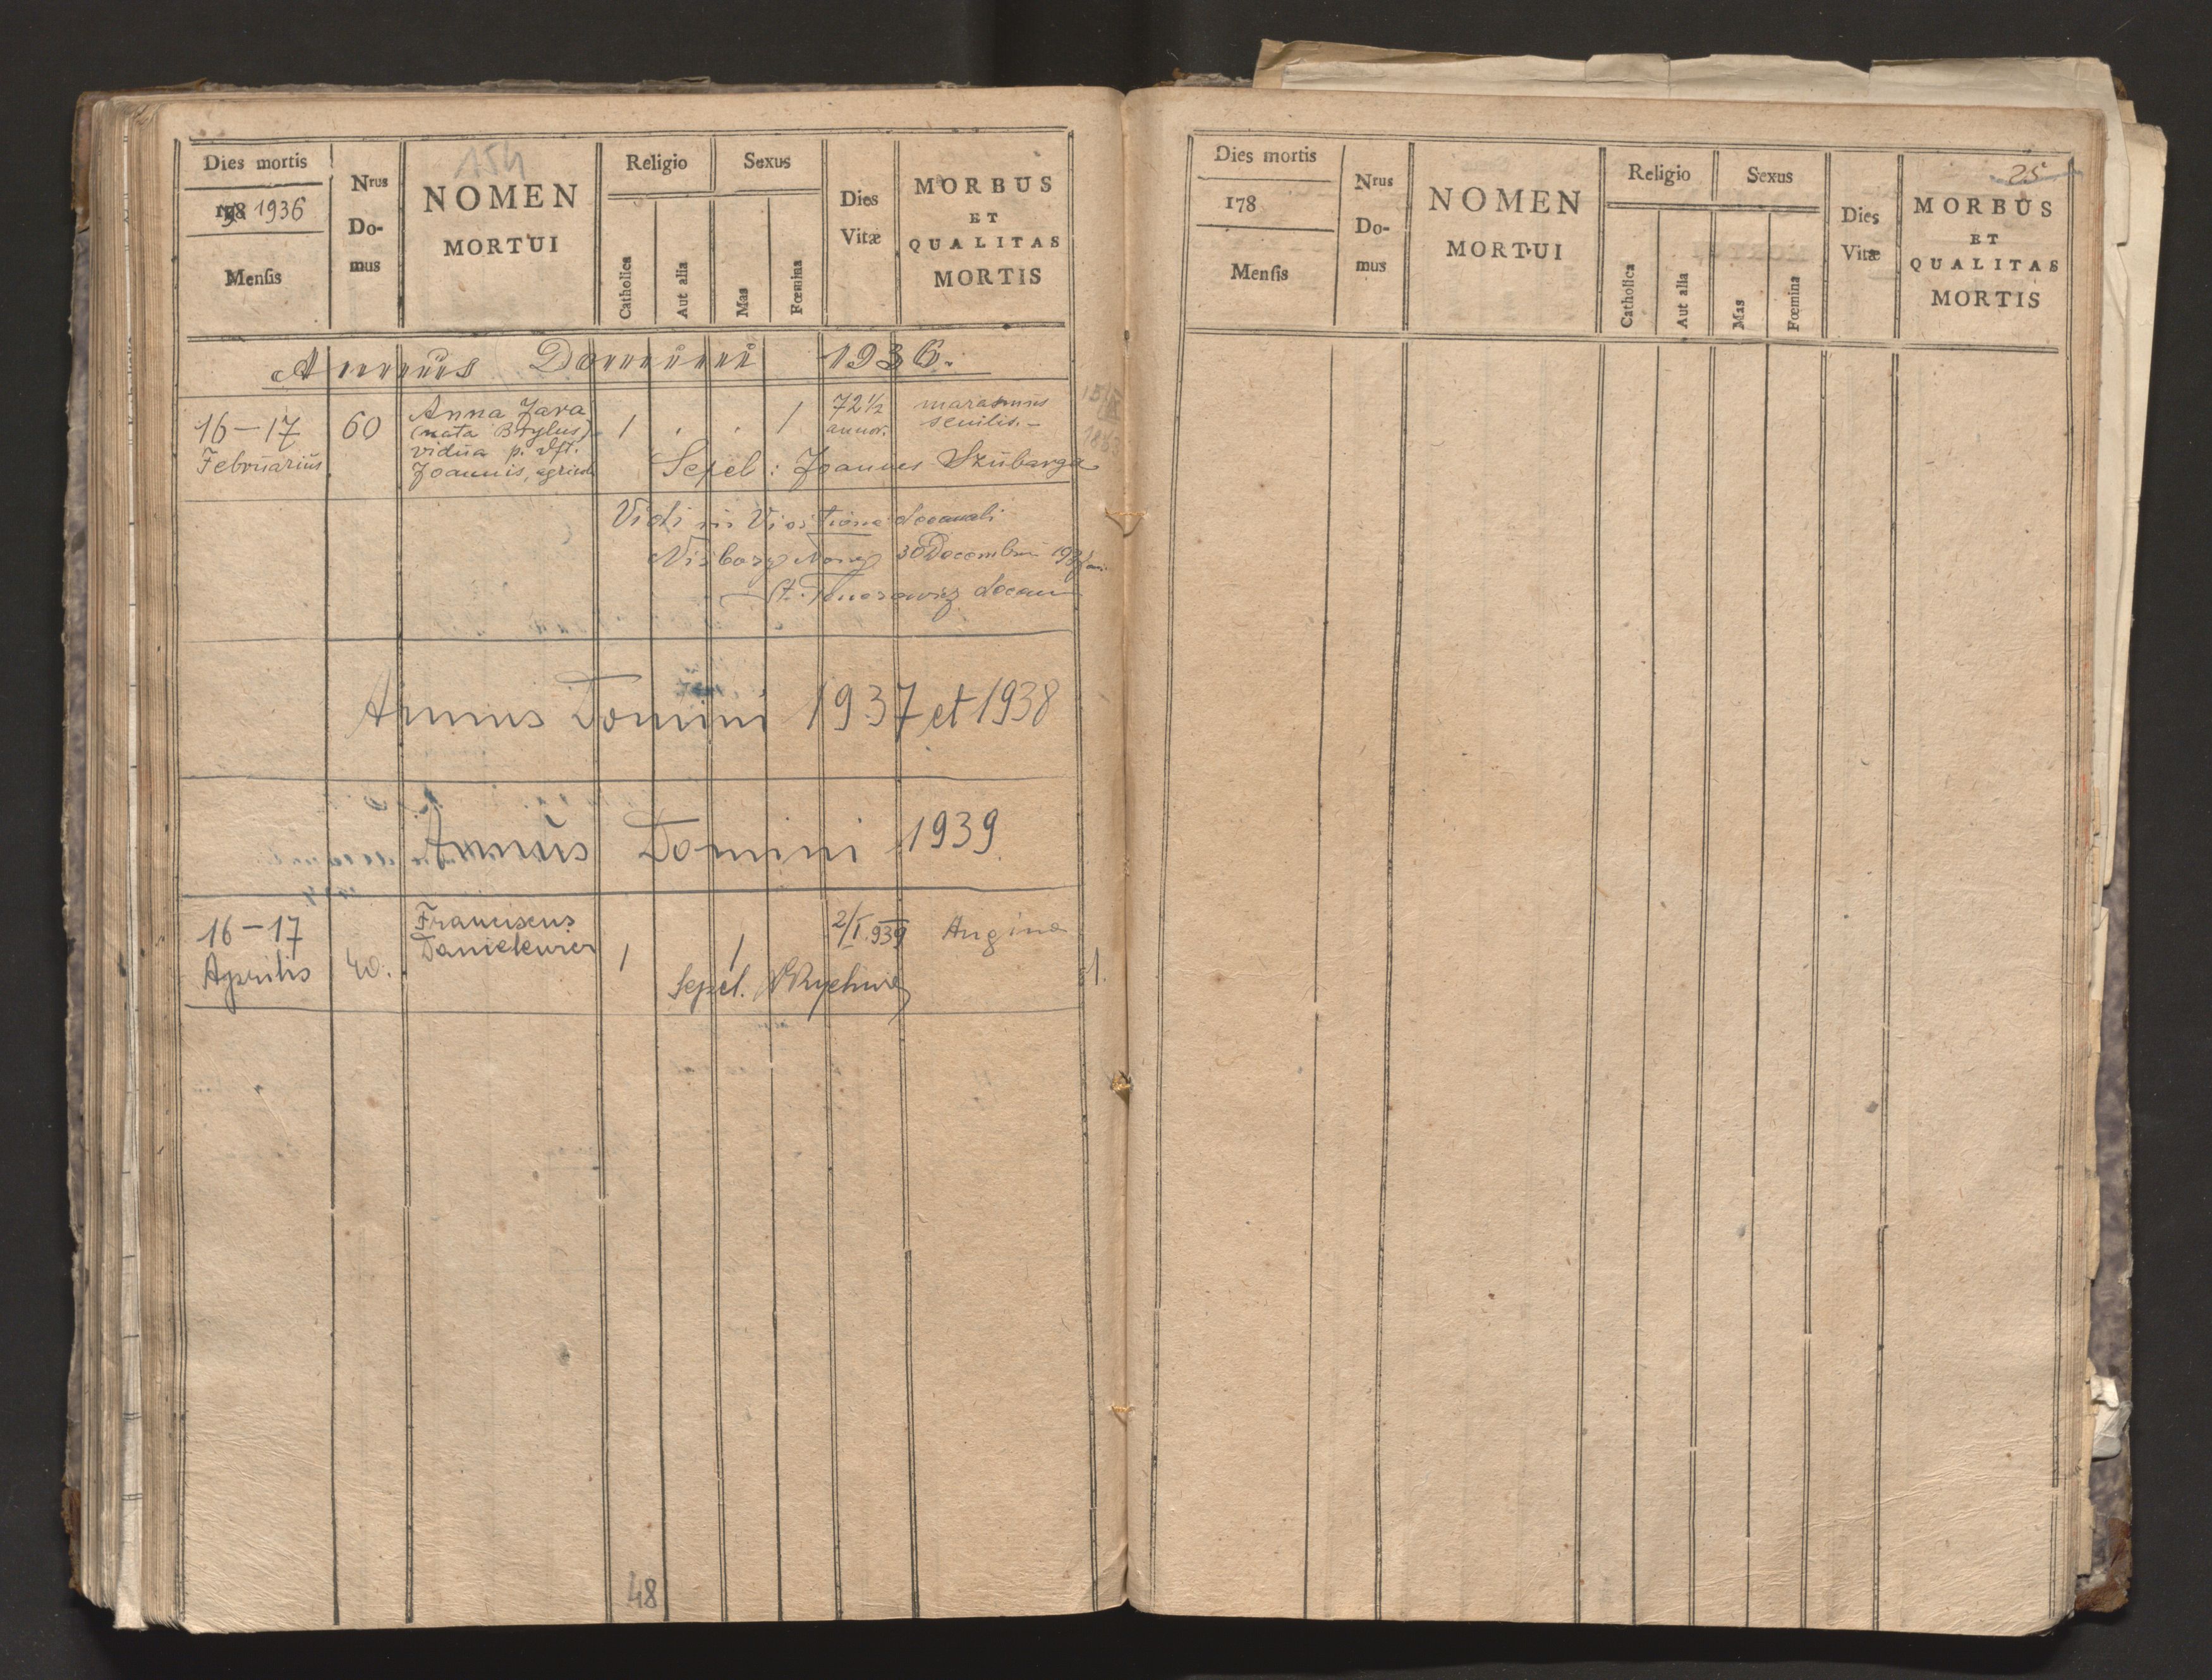 154
Dies mortis
178 1936
Mensis
Nrus
Do-
mus
NOMEN
MORTUI
Religio
Catholica
Aut alia
Sexus
Mas
Fœmina
Dies
Vitæ
MORBUS
ET
QUALITAS
MORTIS
Annus Domini 1936.
16–17
Februarius
60
Anna Jara
(nata Brylus)
vidua p. dft.
Joannis, agricol
1 . . 1
72 1/2
annor.
marasmus
senilis. –
Sepel: Joannes Szubarga
Vidi in Visitione decanali
30 Decembris
decan
Annus Domini 1937 et 1938
Annus Domini 1939
16–17
Aprilis
40.
Franciscus
Danielewicz
1
1
2/I.939
Angina
Sepel.
1.
48
25
Dies mortis
178
Mensis
Nrus
Do-
mus
NOMEN
MORTUI
Religio
Catholica
Aut alia
Sexus
Mas
Fœmina
Dies
Vitæ
MORBUS
ET
QUALITAS
MORTIS